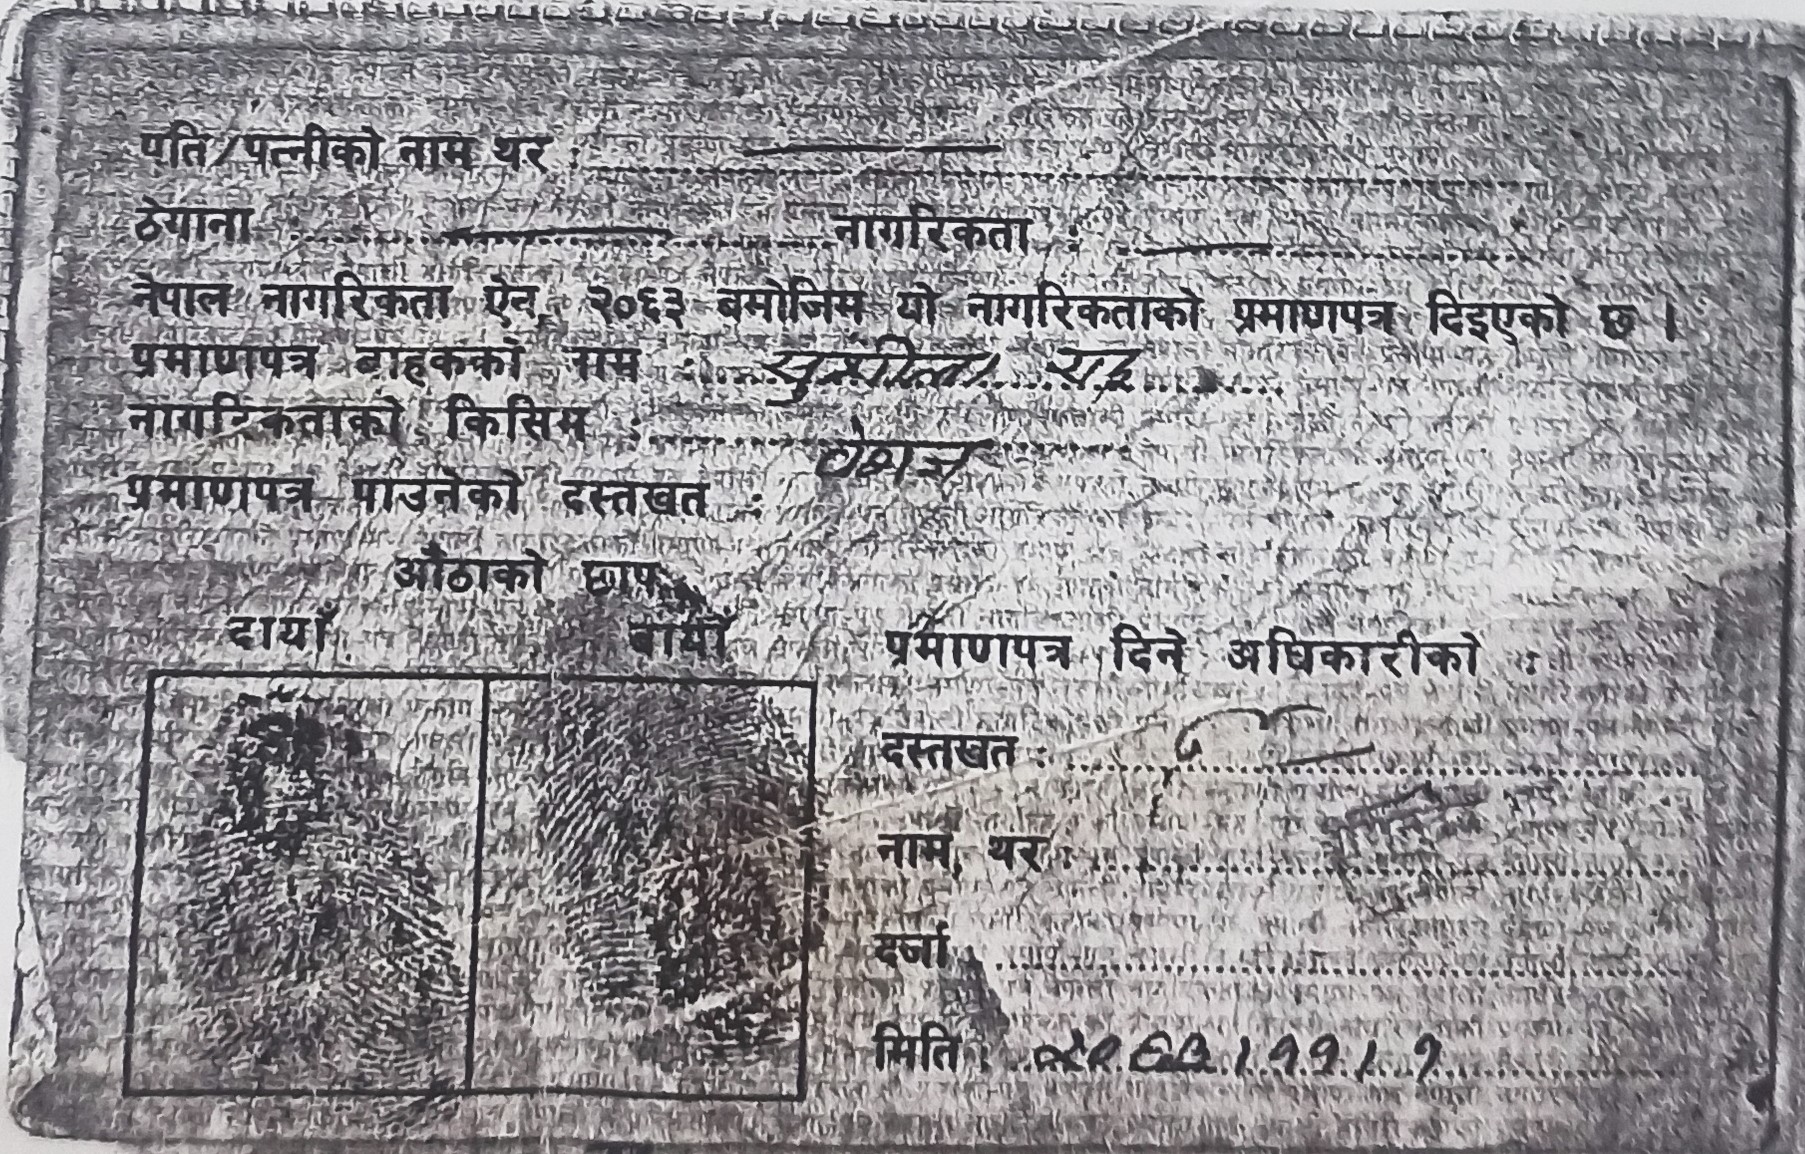 पति/पत्नीको नाम थर :
ठेगाना नागरिकता :
नेपाल नागरिकता ऐन, २०६३ बमोजिम यो नागरिकताको प्रमाणपत्र दिइएको छ ।
प्रमाणपत्र वाहकको नाम :
नागरिकताको किसिम : वंशज
प्रमाणपत्र पाउनेको दस्तखत :
औंठाको छाप
दायाँ बायाँ
प्रमाणपत्र दिने अधिकारीको :
दस्तखत :
नाम, थर :
दर्जा
मिति :